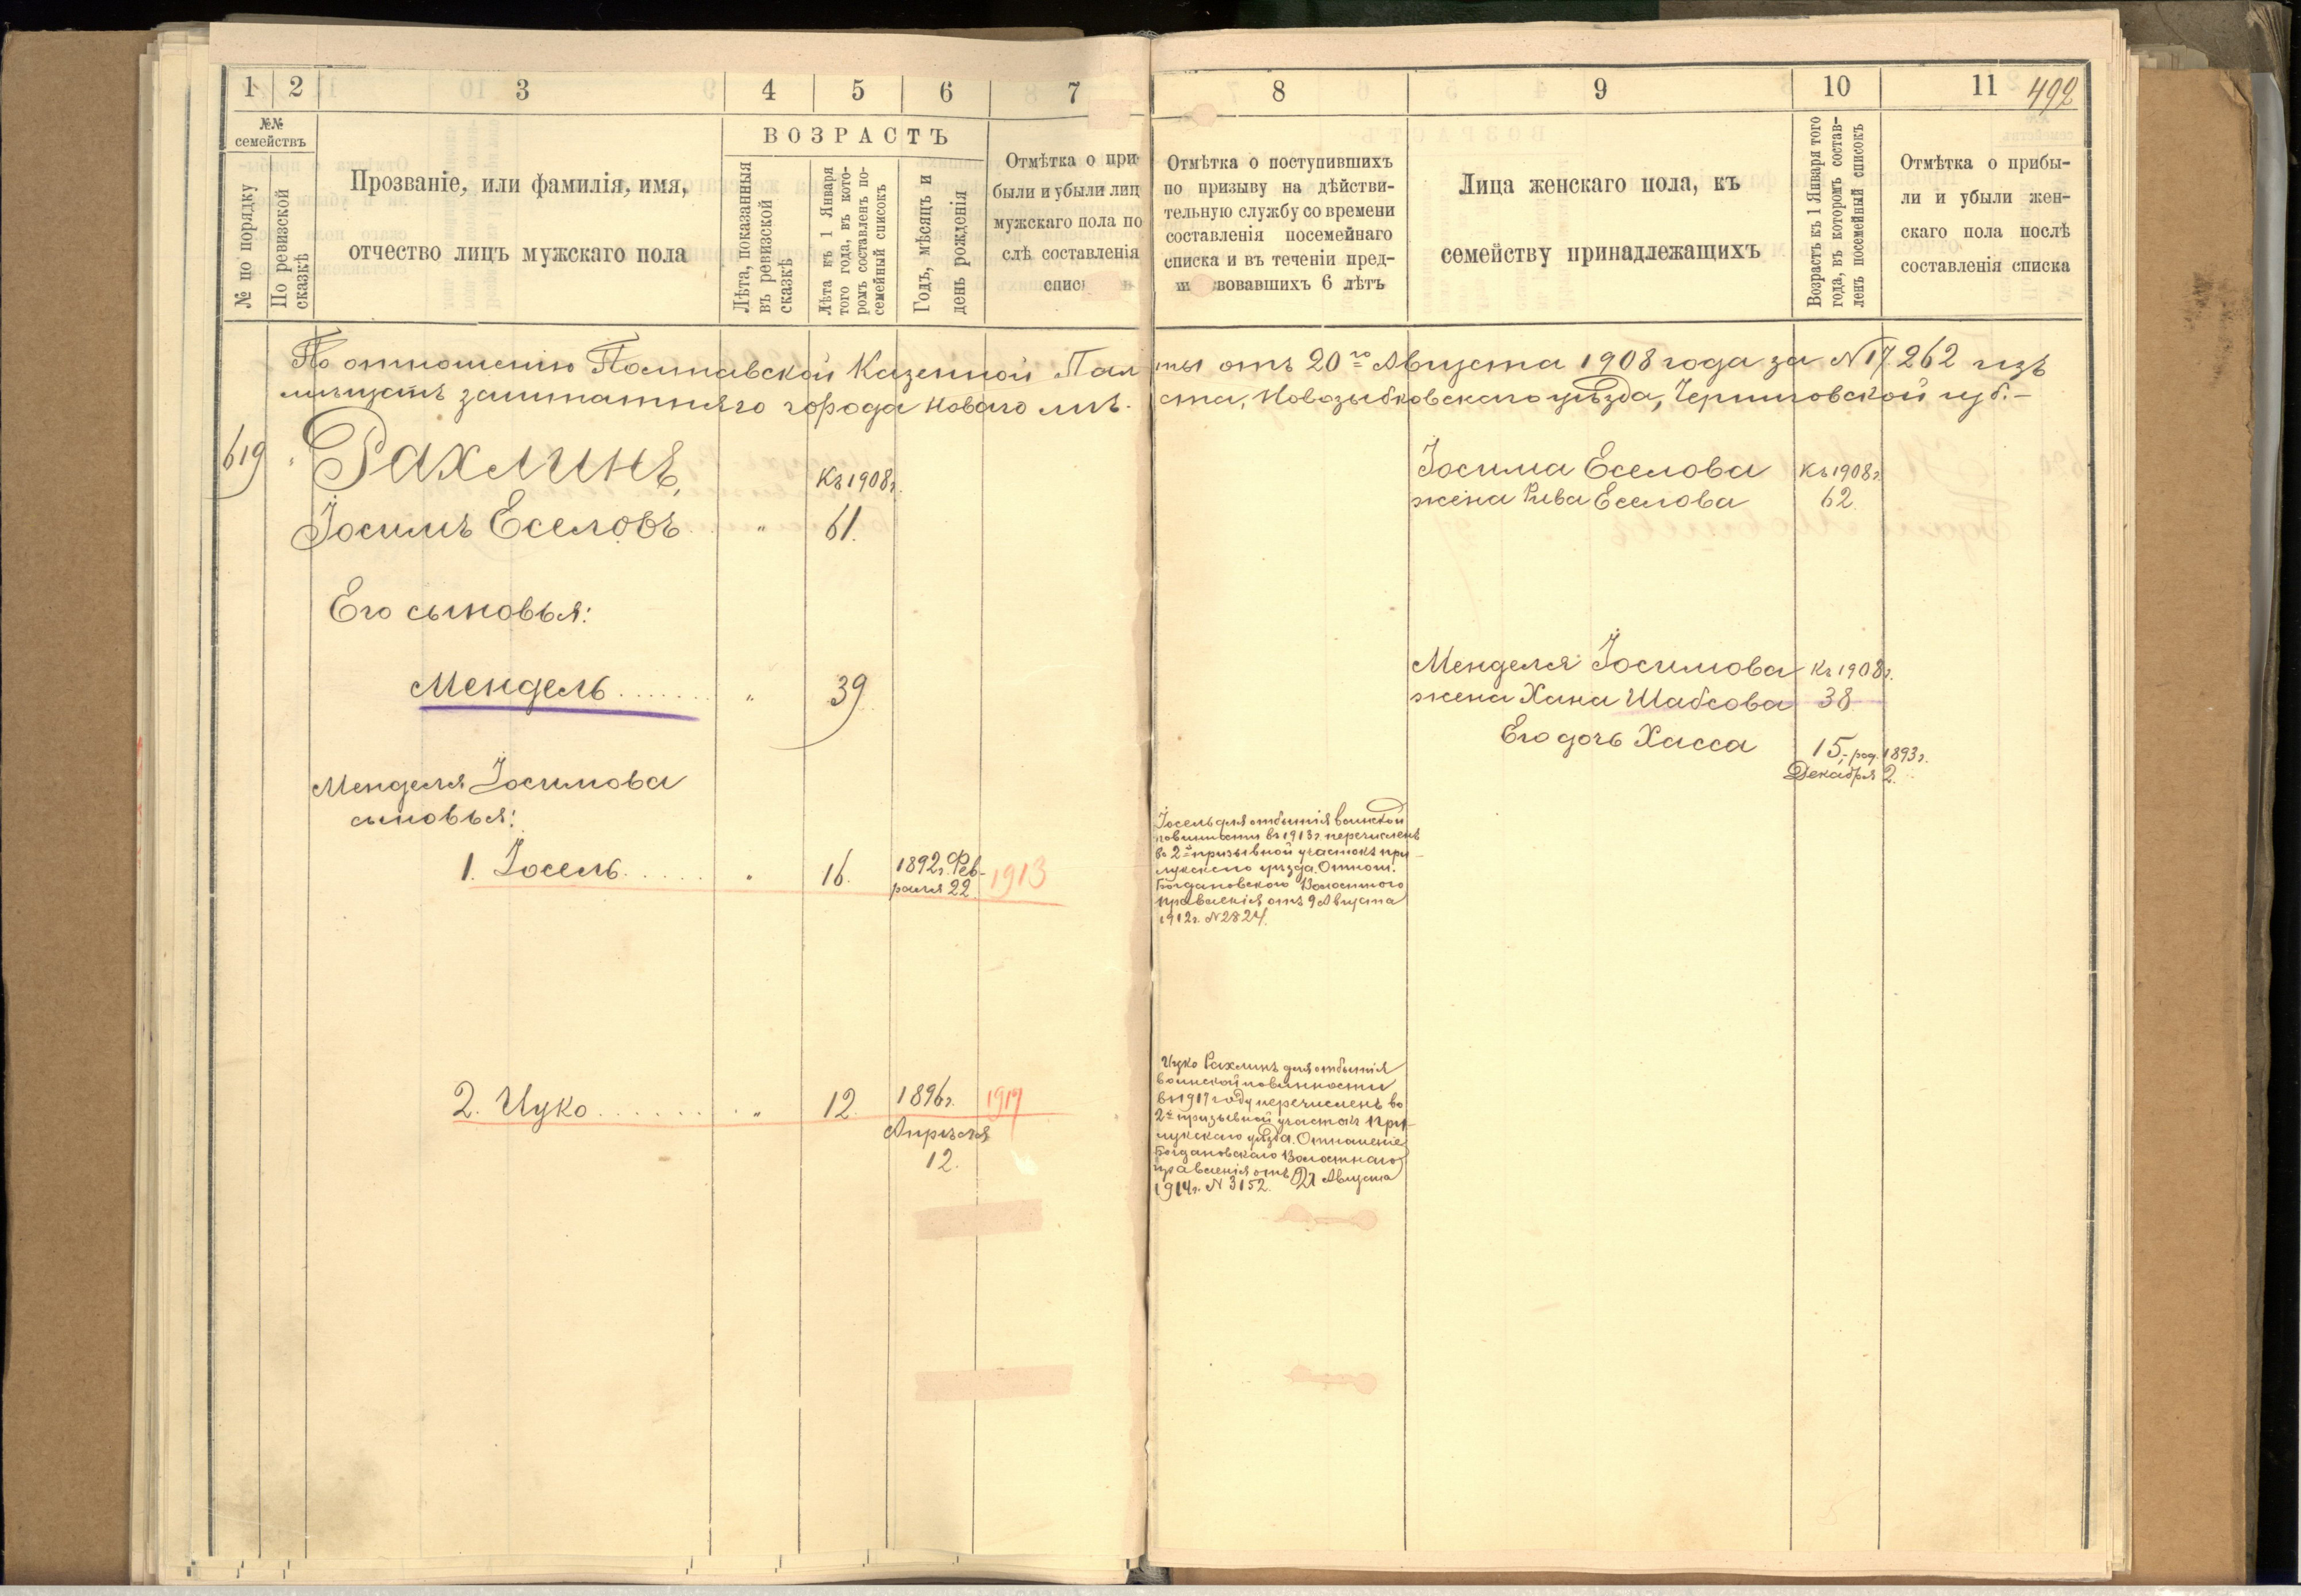 1 2 3 4 5 6 7 8 9 10 11 492
№№ семействъ
№ по порядку
По ревизской сказкѣ
Прозваніе, или фамилія, имя,
отчество лицъ мужскаго пола
ВОЗРАСТЪ
Лѣта, показанныя
въ ревизской
сказкѣ
Лѣта къ 1 Января
того года, въ кото-
ромъ составленъ по-
семейный списокъ
Годъ, мѣсяцъ и
день рожденія
Отмѣтка о при-
были и убыли лицъ
мужскаго пола по
слѣ составленія
Отмѣтка о поступившихъ
по призыву на дѣйстви-
тельную службу со времени
составленія посемейнаго
списка и въ теченіи пред-
вовавшихъ 6 лѣтъ
Лица женскаго пола, къ
семейству принадлежащихъ
Возрастъ къ 1 Января того
года, въ которомъ состав-
ленъ посемейный списокъ
Отмѣтка о прибы-
ли и убыли жен-
скаго пола послѣ
составленія списка
По отношенію Полтавской Казенной Палаты отъ 20го Августа 1908 года за N 17262 изъ
мѣщанъ заштатнаго города Новаго мѣста, Новозыбковскаго уѣзда, Черниговской губ.-
619 " Рахлинъ,
Къ 1908 г.
Іосимъ Еселовъ " 61.
Іосима Еселова Къ 1908 г.
жена Рива Еселова 62.
Его сыновья:
Мендель....... " 39.
Менделя Іосимова Къ 1908 г.
жена Хана Шабсова 38
Его дочь Хасса 15, род. 1893 г.
Декабря 2.
Менделя Іосимова
сыновья:
1. Іосель..... " 16. 1892 г. Фев-
раля 22. 1913
Іосель для отбытія воинской
повинности въ 1913 г. перечисленъ
во 2й призывной участокъ при-
лукскаго уѣзда. Отнош.
Богдановскаго Волостного
правленія отъ 9 Августа
1912 г. N 2824.
2. Ицко....... " 12. 1896 г. 1917
Апрѣля
12.
Ицко Рахлинъ для отбытія
воинской повинности
въ 1917 году перечисленъ во
2й призывной участокъ При-
лукскаго уѣзда. Отношеніе
Богдановскаго Волостнаго
правленія отъ 21 Августа
1914 г. N 3152.